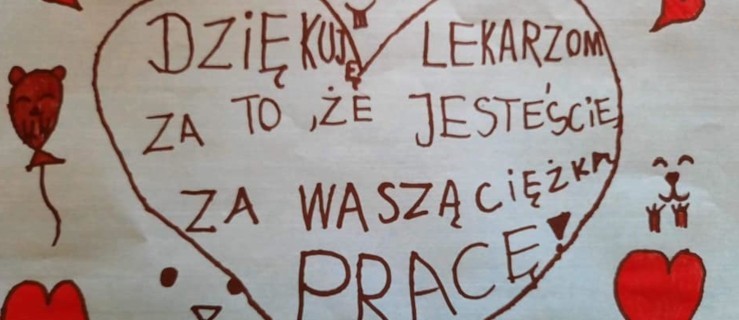 DZIĘKUJĘ LEKARZOM
ZA TO ,ŻE JESTEŚCIE
ZA WASZĄ CIĘŻKĄ
PRACĘ